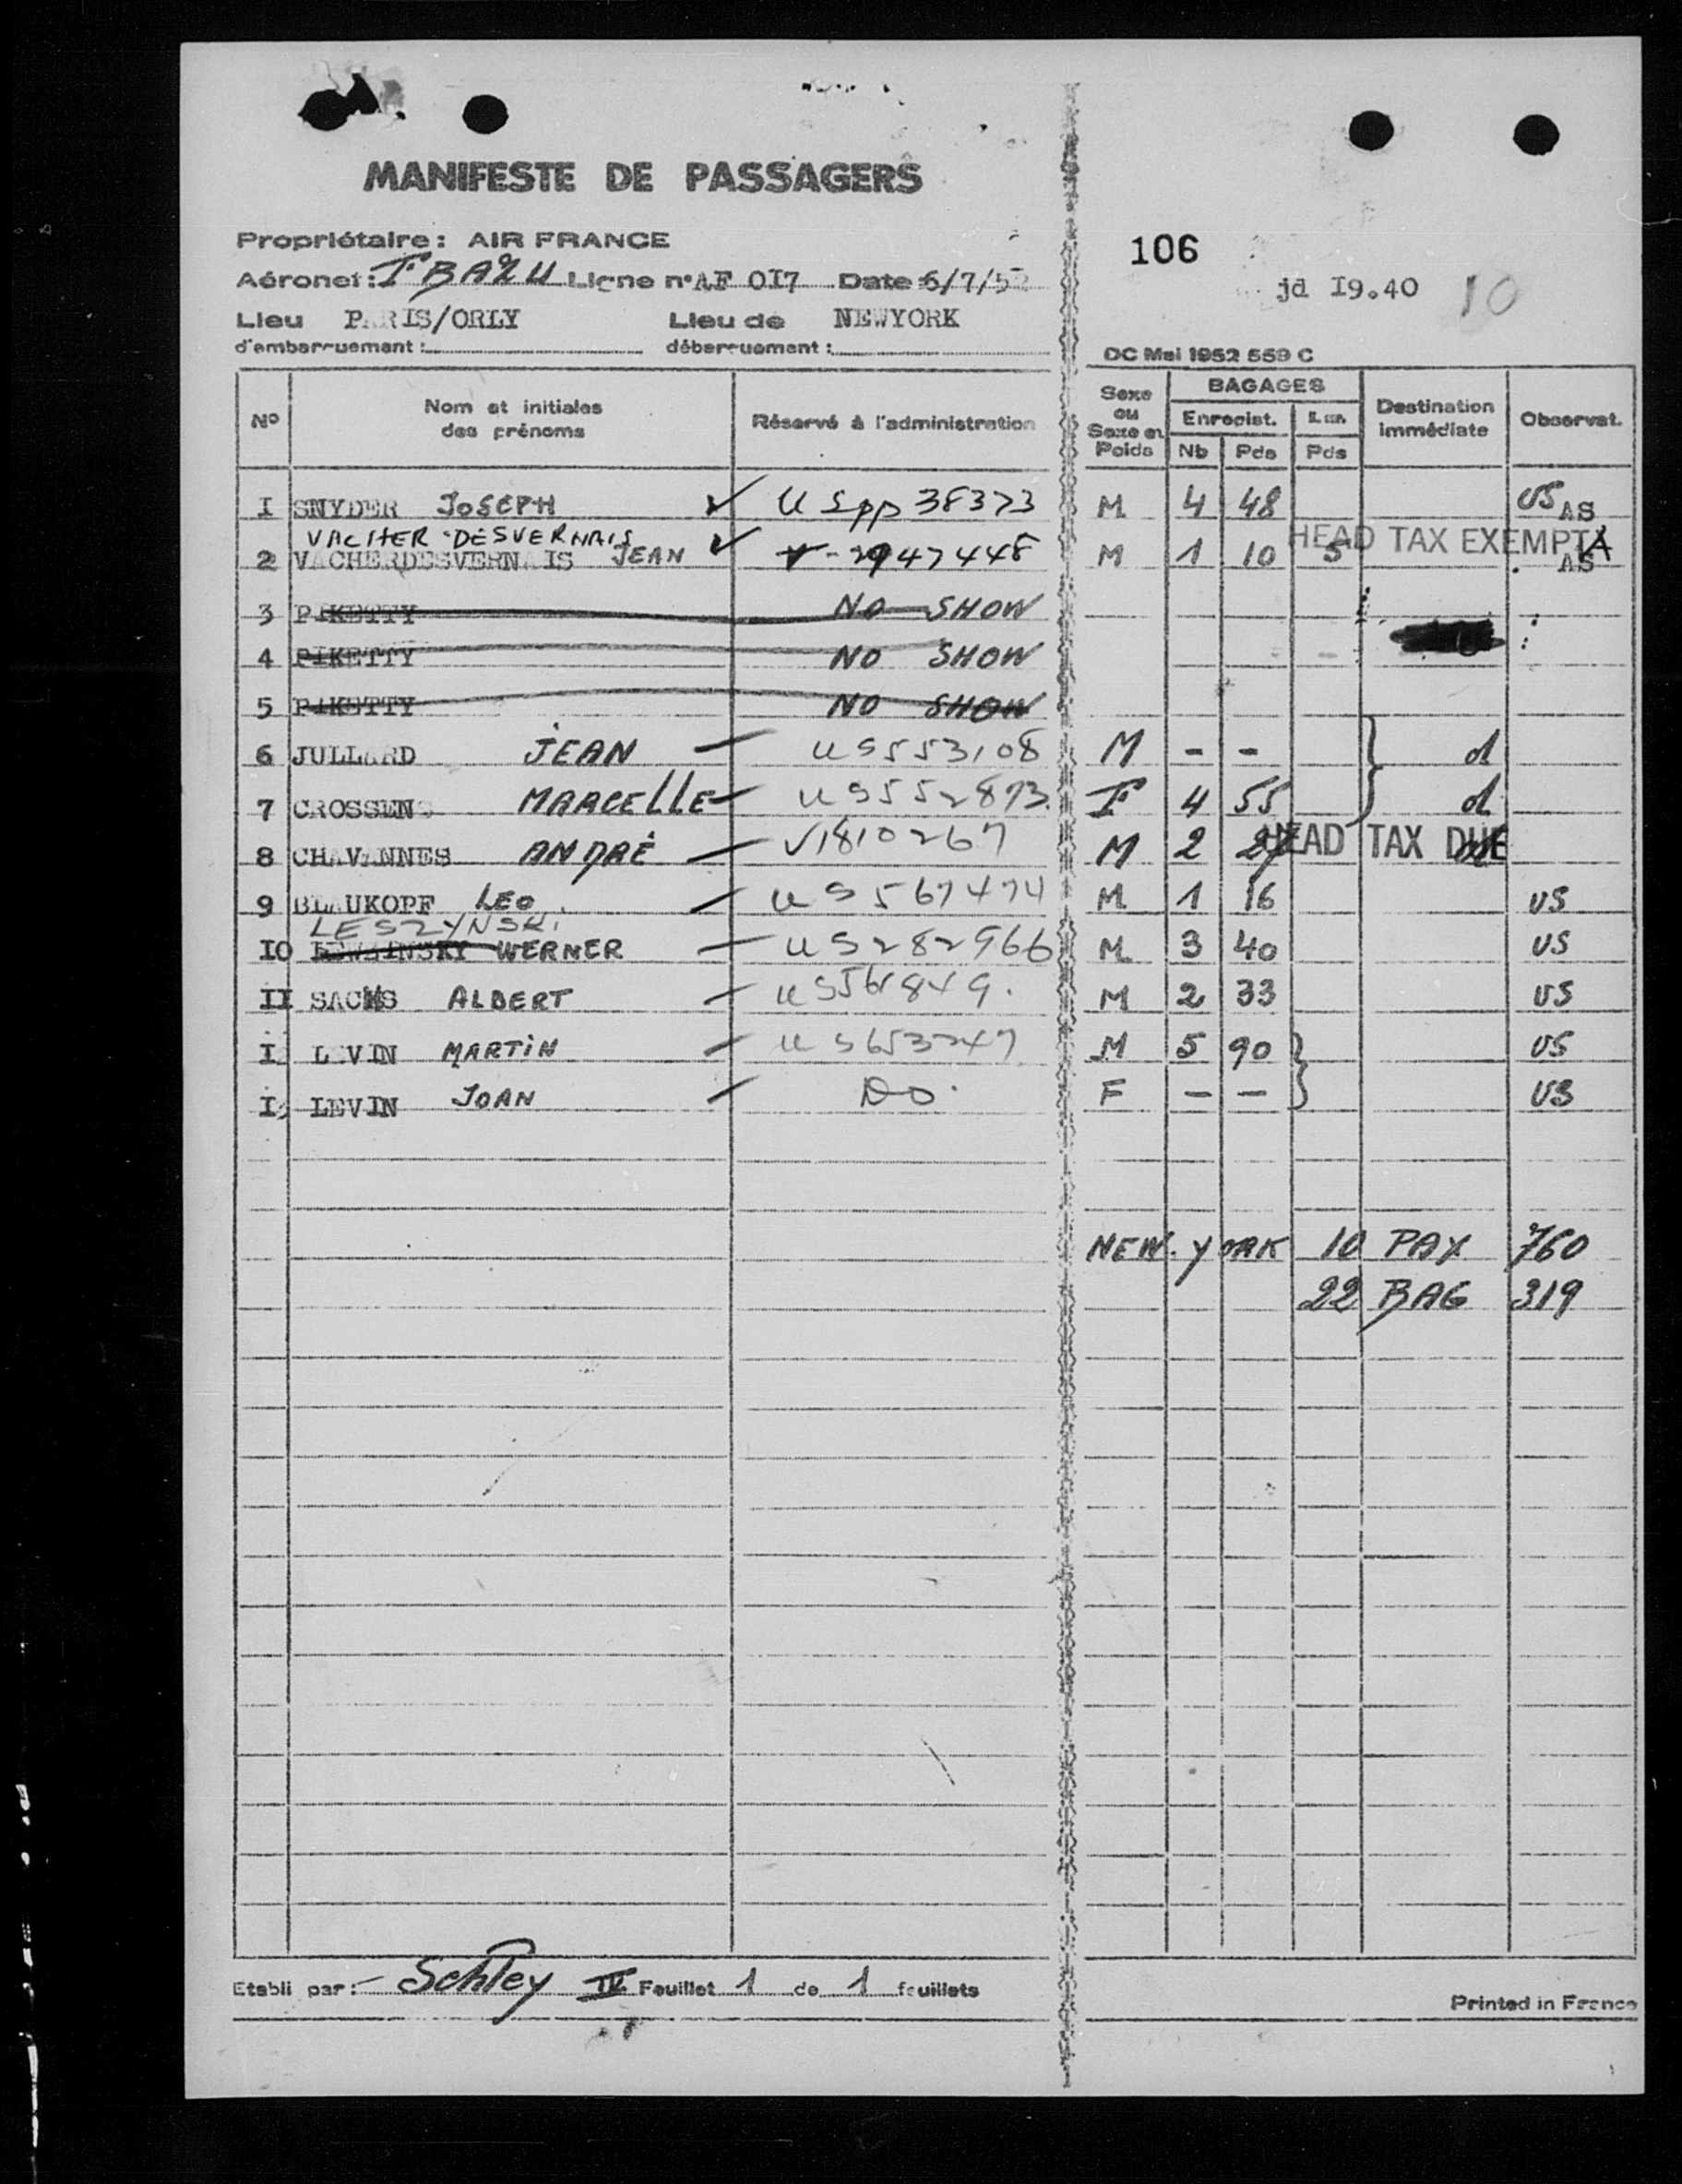 MANIFESTE DE PASSAGERS
Propriétaire: AIR FRANCE
106
Aéronef: FBAZU Ligne n° AF 0I7 Date 6/7/52
jd I9.40 10
Lieu d'embarquement: PARIS/ORLY Lieu de débarquement: NEWYORK
DC Mai 1952 559 C
N° Nom et initiales des prénoms Réservé à l'administration Sexe ou Sexe et Poids BAGAGES Enregist. Nb Pds Pds Destination immédiate Observat.
I SNYDER JOSEPH ✓ US pp 38373 M 4 48 US AS
VACHER DESVERNAIS
HEAD TAX EXEMPT
2 VACHERDESVERNAIS JEAN ✓ V-2947448 M 1 10 5 AS
3 PIKETTY NO SHOW
4 PIKETTY NO SHOW
5 PIKETTY NO SHOW
6 JULLARD JEAN US553108 M - - d
7 CROSSENS MARCELLE US552873 F 4 55 d
8 CHAVANNES ANDRÉ V1810267 M 2 27 HEAD TAX DUE
9 BLAUKOPF LEO US567474 M 1 16 US
LESZYNSKI
I0 WERNER US282966 M 3 40 US
II SACHS ALBERT M 2 33 US
I LEVIN MARTIN US653247 M 5 90 US
I3 LEVIN JOAN DO. F - - US
NEW-YORK 10 PAX 760
22 BAG 319
Etabli par: Schley IV Feuillet 1 de 1 feuillets
Printed in France